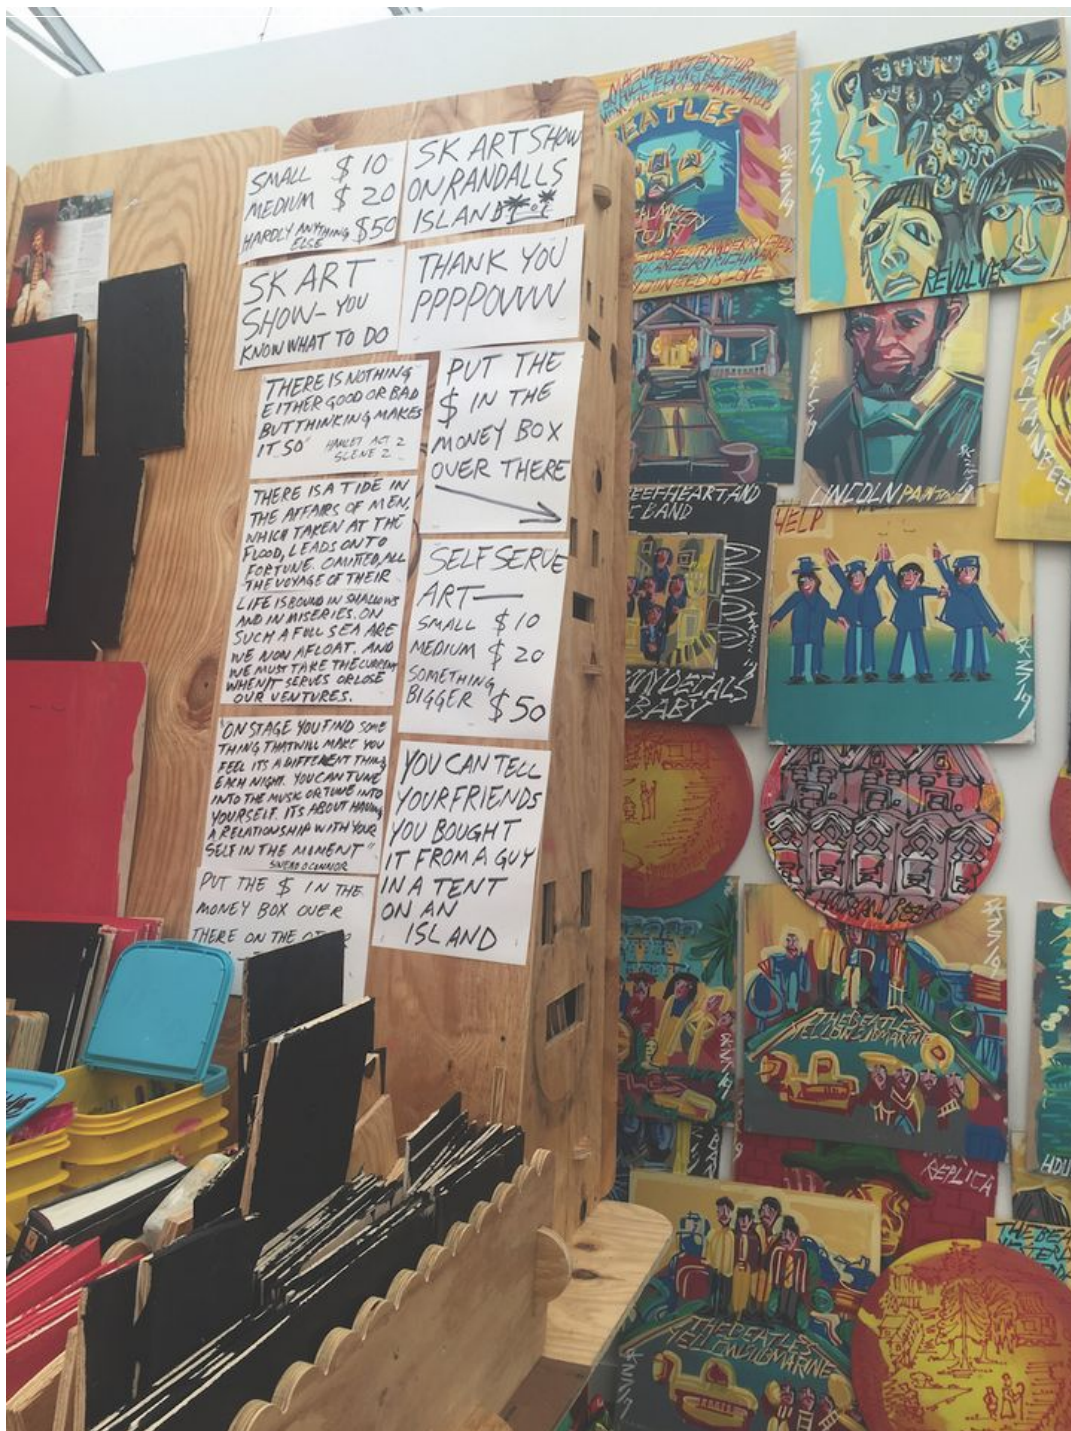 SMALL $ 10
MEDIUM $ 20
HARDLY ANYTHING
ELSE $50
SK ART SHOW
ON RANDALLS
ISLAND
SK ART
SHOW- YOU
KNOW WHAT TO DO
THANK YOU
PPPPOWWW
THERE IS NOTHING
EITHER GOOD OR BAD
BUT THINKING MAKES
IT SO"
HAMLET ACT 2
SCENE 2
PUT THE
$ IN THE
MONEY BOX
OVER THERE
THERE IS A TIDE IN
THE AFFAIRS OF MEN,
WHICH TAKEN AT THE
FLOOD, LEADS ON TO
FORTUNE. OMITTED, ALL
THE VOYAGE OF THEIR
LIFE IS BOUND IN SHALLOWS
AND IN MISERIES. ON
SUCH A FULL SEA ARE
WE NOW AFLOAT. AND
WE MUST TAKE THE CURRENT
WHEN IT SERVES OR LOSE
OUR VENTURES.
SELF SERVE
ART—
SMALL $ 10
MEDIUM $ 20
SOMETHING
BIGGER $ 50
"ON STAGE YOU FIND SOME
THING THAT WILL MAKE YOU
FEEL ITS A DIFFERENT THING
EACH NIGHT. YOU CAN TUNE
INTO THE MUSIC OR TUNE INTO
YOURSELF. ITS ABOUT HAVING
A RELATIONSHIP WITH YOUR
SELF IN THE MOMENT"
SINEAD OCONNOR
YOU CAN TELL
YOUR FRIENDS
YOU BOUGHT
IT FROM A GUY
IN A TENT
ON AN
ISLAND
PUT THE $ IN THE
MONEY BOX OVER
THERE ON THE
MAGICAL MYSTERY TOUR
EATLES
REVOLVER
LINCOLN PAINTING
EEFHEART AND
BAND
BABY
HELP
THE BEATLES
YELLOW SUBMARINE
REPLICA
THE BEA
THE BEATLES
YELLOW SUBMARINE